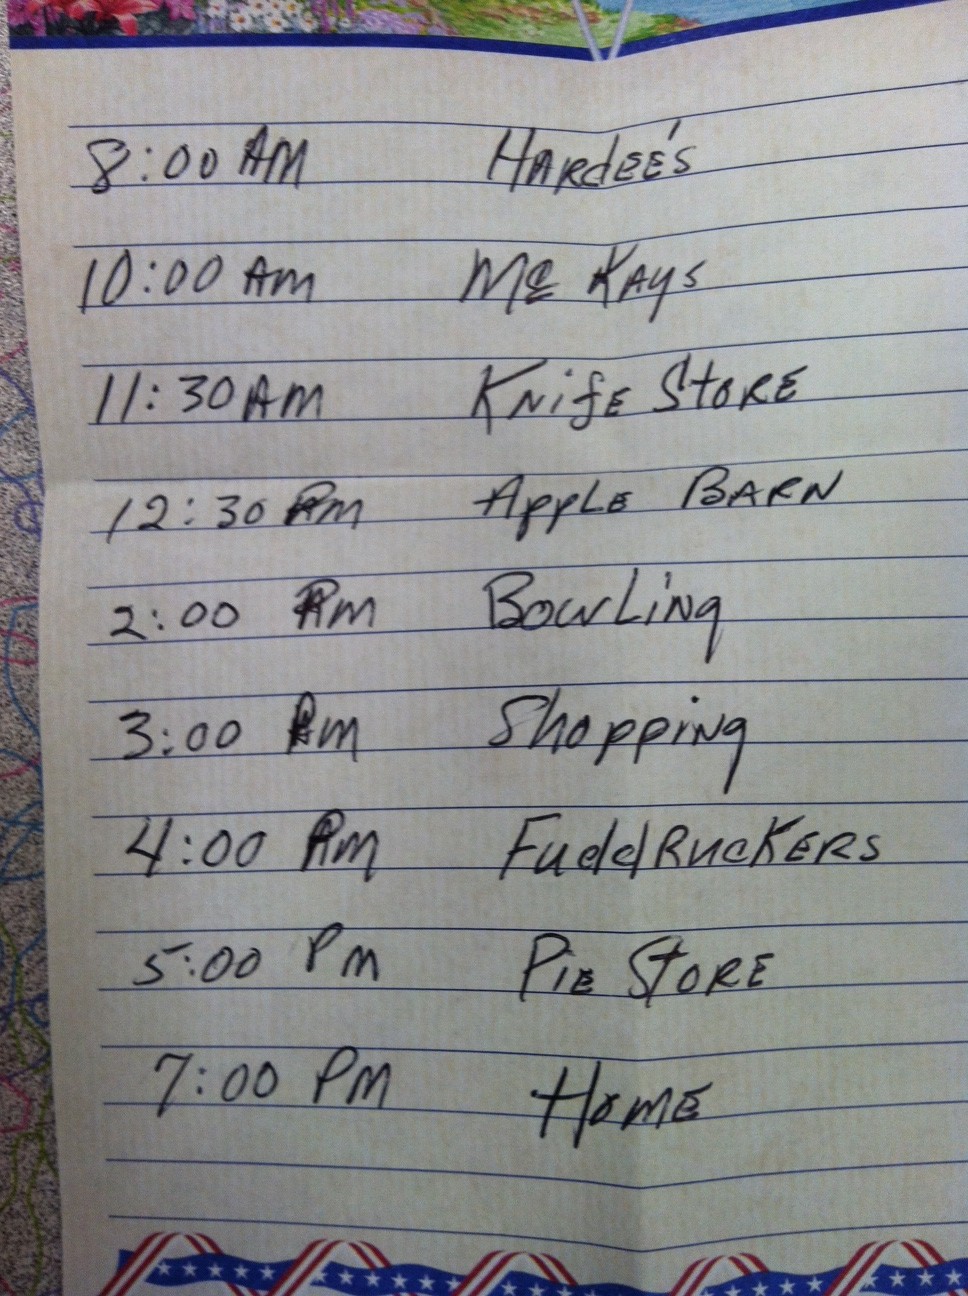 8:00 AM Hardee's
10:00 AM Mc Kays
11:30 AM Knife Store
12:30 PM Apple Barn
2:00 PM Bowling
3:00 PM Shopping
4:00 PM Fuddruckers
5:00 PM Pie Store
7:00 PM Home